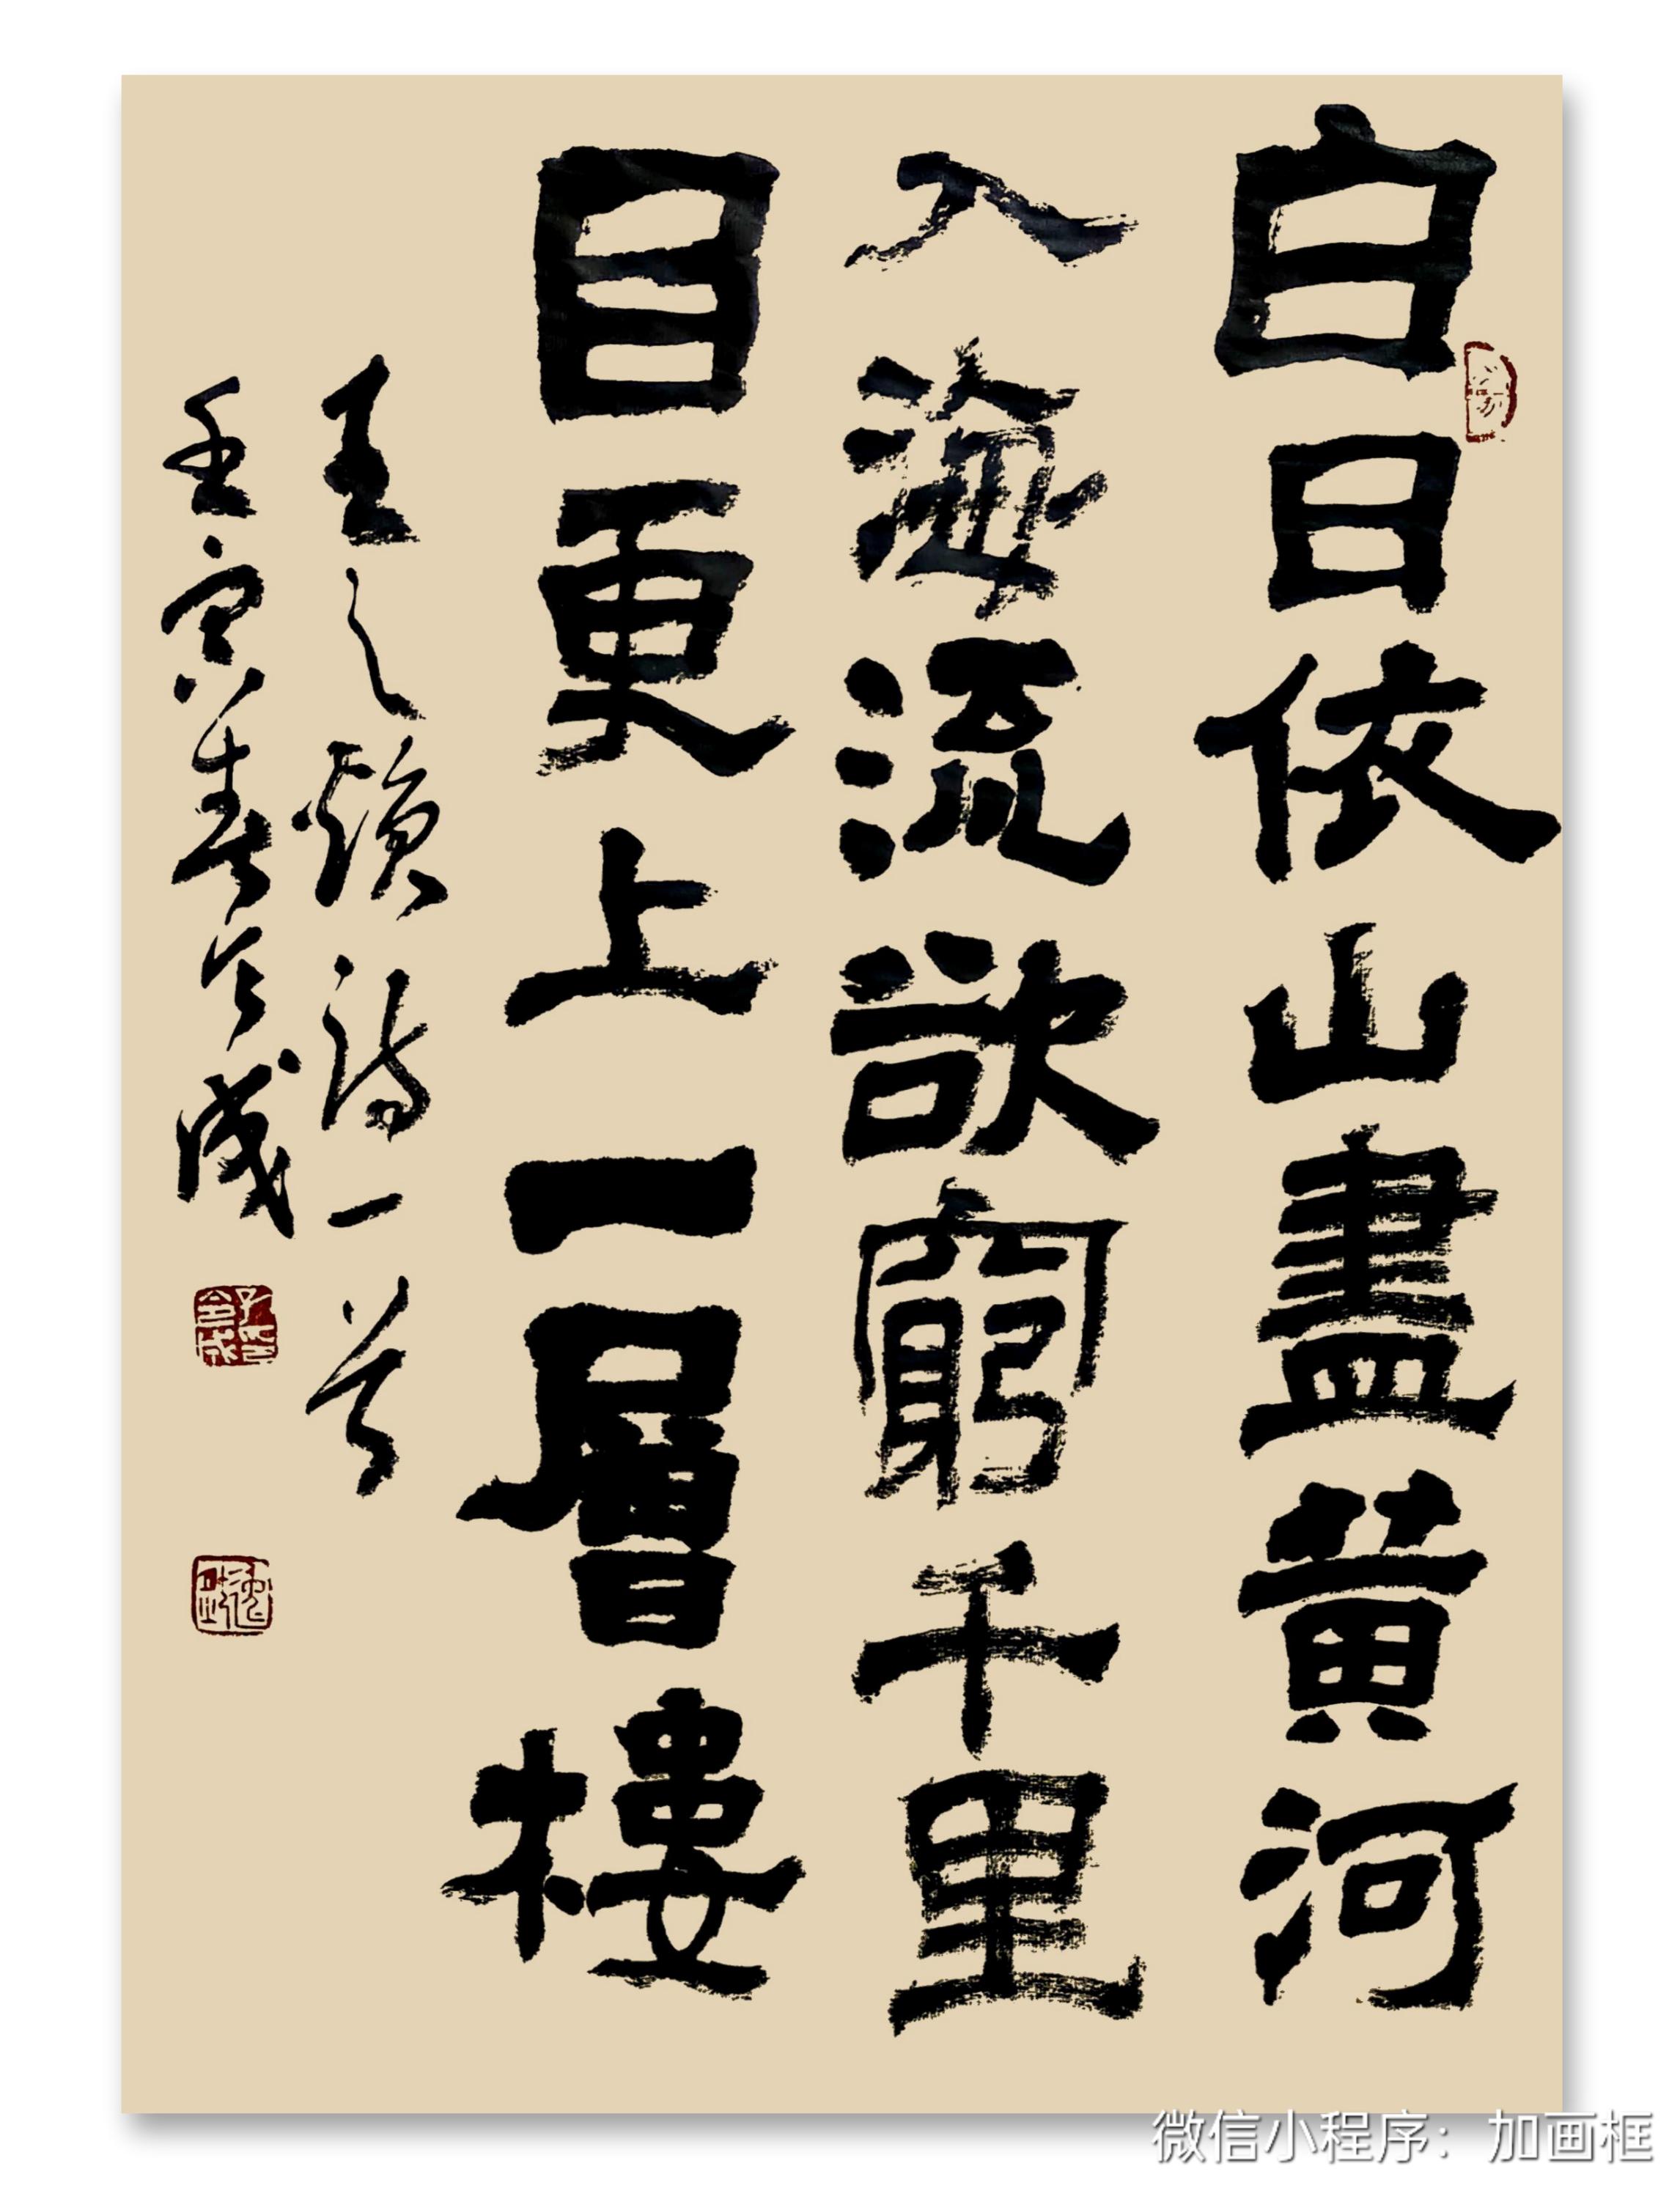 白日依山盡黄河
入海流欲窮千里
目更上一層樓
王之頌詩一首
壬寅春令成
微信小程序：加画框